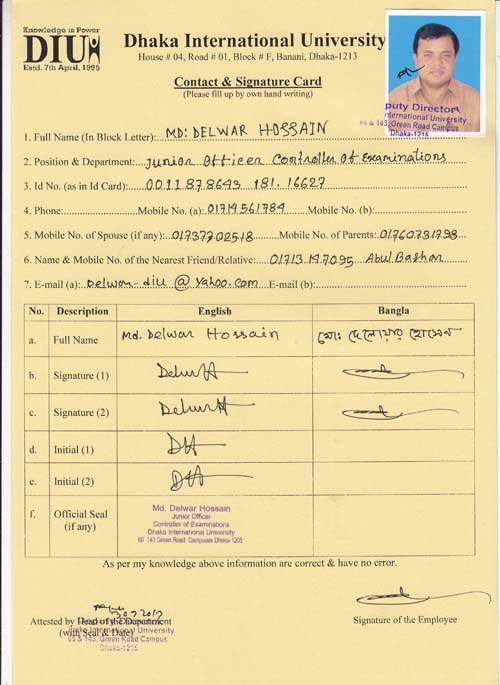 Knowledge is Power
DIU
Estd. 7th April, 1995
Dhaka International University
House # 04, Road # 01, Block # F, Banani, Dhaka-1213
Contact & Signature Card
(Please fill up by own hand writing)
puty Director
International University
66 & 143, Green Road Campus
Dhaka-1215
1. Full Name (In Block Letter): MD: DELWAR HOSSAIN
2. Position & Department: Junior Officer Controller of Examinations
3. Id No. (as in Id Card): 0011878643 181. 16627
4. Phone: Mobile No. (a): 01714561784 Mobile No. (b):
5. Mobile No. of Spouse (if any): 01737702518 Mobile No. of Parents: 01760731798
6. Name & Mobile No. of the Nearest Friend/Relative: 01713197095 Abul Bashar
7. E-mail (a): Delwar-diu @ Yahoo.com E-mail (b):
No. Description English Bangla
a. Full Name Md. Delwar Hossain মোঃ দেলোয়ার হোসেন
b. Signature (1)
c. Signature (2)
d. Initial (1) DH
e. Initial (2) DH
f. Official Seal (if any)
Md. Delwar Hossain
Junior Officer
Controller of Examinations
Dhaka International University
66 143 Green Road. Campuses Dhaka-1205
As per my knowledge above information are correct & have no error.
Attested by Head of the Department
(with Seal & Date)
International University
66 & 143, Green Road Campus
Dhaka-1215
Signature of the Employee